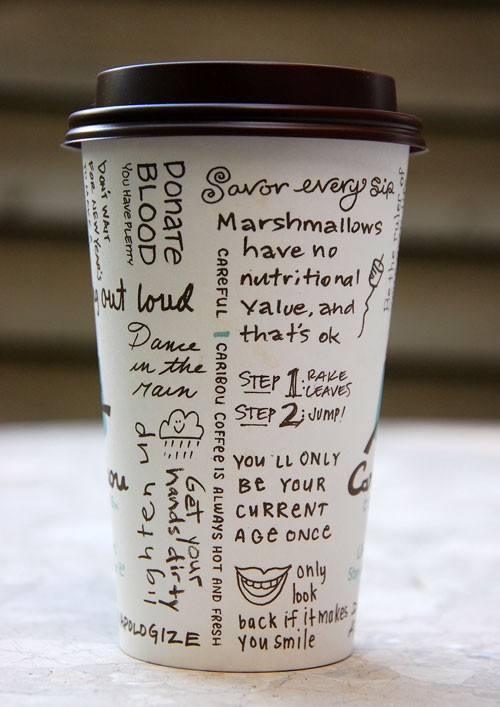 Savor every sip
Marshmallows
have no
nutritional
value, and
that's ok
STEP 1: RAKE
LEAVES
STEP 2: JUMP!
YOU'LL ONLY
BE YOUR
CURRENT
AGE ONCE
only
look
back if it makes
you smile
CAREFUL | CARIBOU COFFEE IS ALWAYS HOT AND FRESH
DONATE
BLOOD
YOU HAVE PLENTY
DON'T WAIT
FOR NEW YEAR'S
out loud
Dance
in the
rain
Get your
hands dirty
APOLOGIZE
Be the ruler of